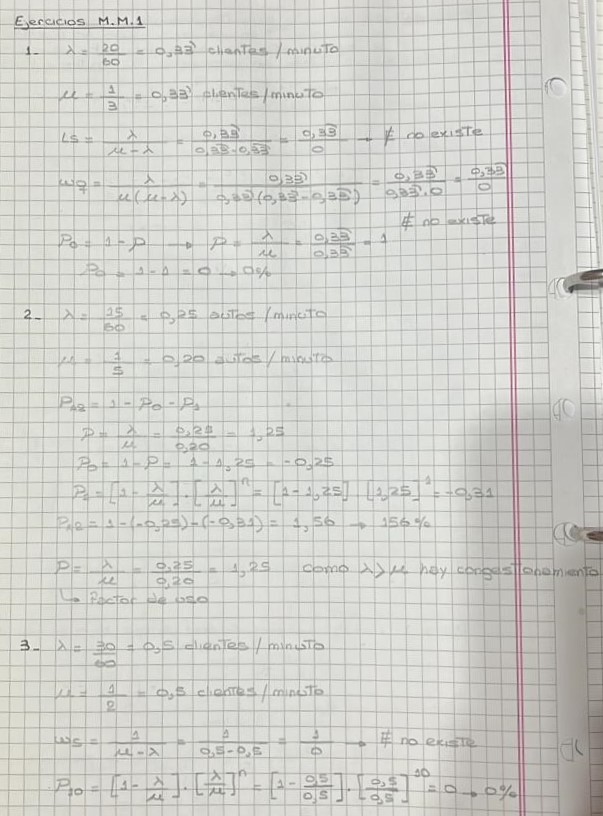 Ejercicios M.M.1
1- λ = 20/60 = 0,33̂ clientes / minuto
μ = 1/3 = 0,33̂ clientes / minuto
Ls = λ/(μ - λ) = 0,33̂/(0,33̂ - 0,33̂) = 0,33̂/0 → ∄ no existe
Wq = λ/(μ(μ - λ)) = 0,33̂/(0,33̂(0,33̂ - 0,33̂)) = 0,33̂/(0,33̂ . 0) = 0,33̂/0
∄ no existe
P₀ = 1 - ρ → ρ = λ/μ = 0,33̂/0,33̂ = 1
P₀ = 1 - 1 = 0 → 0%
2- λ = 15/60 = 0,25 autos / minuto
μ = 1/5 = 0,20 autos / minuto
= 1 - P₀ - P₁
ρ = λ/μ = /0,20 = 1,25
P₀ = 1 - ρ = 1 - 1,25 = -0,25
P₁ = [1 - λ/μ] . [λ/μ]ⁿ = [1 - 1,25] [1,25]¹ = -0,31
= 1 - (-0,25) - (-0,31) = 1,56 → 156%
ρ = λ/μ = 0,25/0,20 = 1,25 como λ > μ hay congestionamiento
↳ Factor de uso
3- λ = 30/60 = 0,5 clientes / minuto
μ = 1/2 = 0,5 clientes / minuto
Ws = 1/(μ - λ) = 1/(0,5 - 0,5) = 1/0 → ∄ no existe
P₁₀ = [1 - λ/μ] . [λ/μ]ⁿ = [1 - 0,5/0,5] . [0,5/0,5]¹⁰ = 0 → 0%